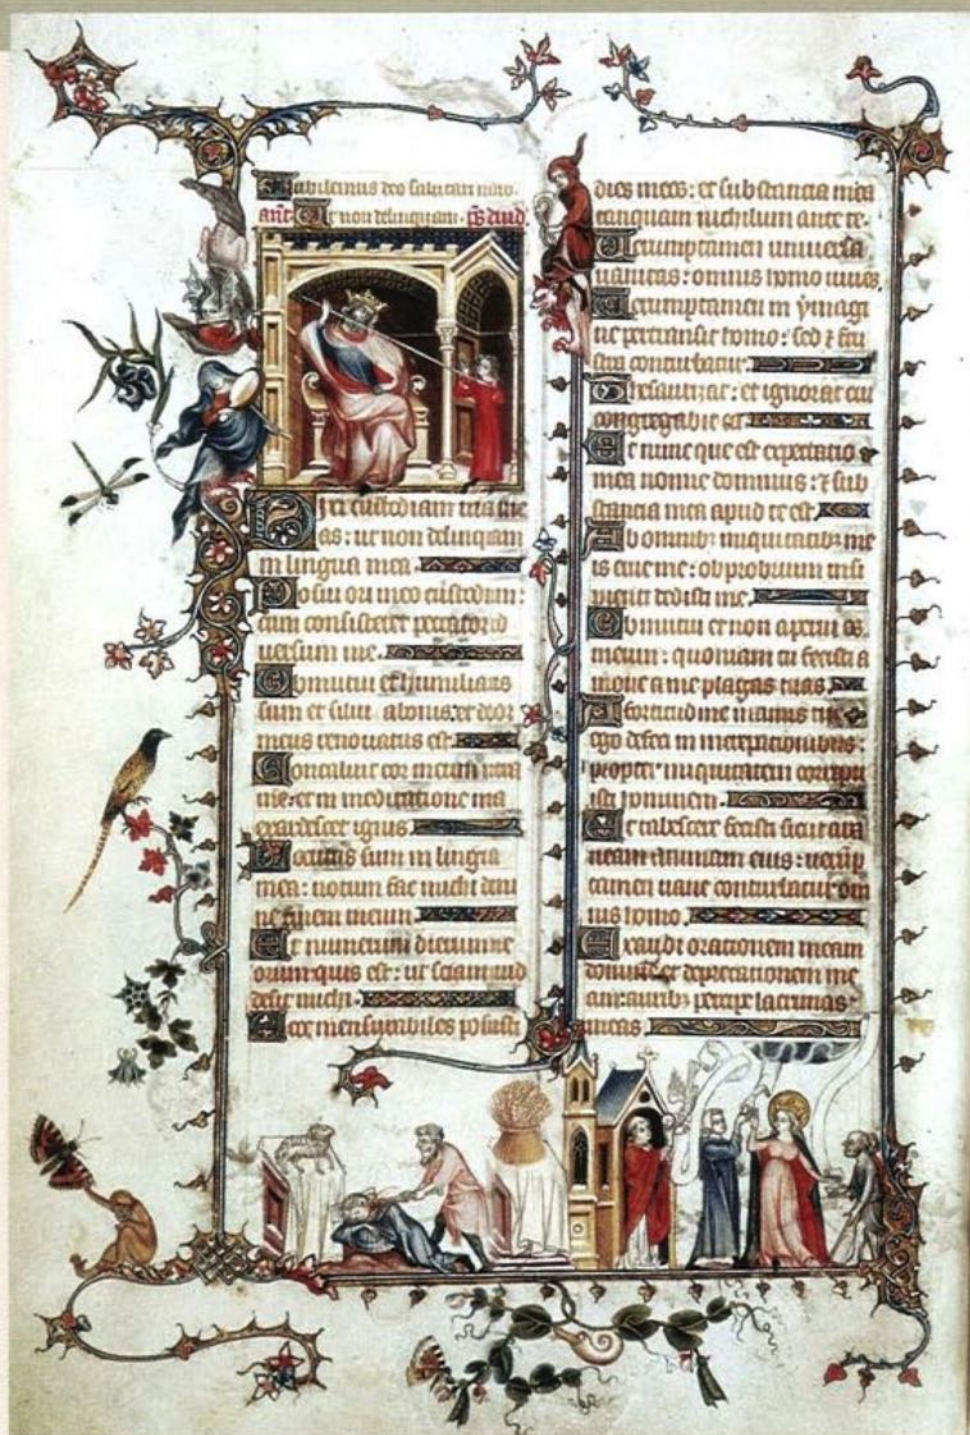 Iubilemus deo salutari nr̄o.
ant̄. Ut non delinquam. pš dauid.
Dixi custodiam uias me
as: ut non delinquam
in lingua mea.
Posui ori meo custodiam:
cum consisteret peccator ad
uersum me.
Obmutui et humiliatus
sum et silui a bonis: et dolor
meus renouatus est.
Concaluit cor meum intra
me: et in meditatione mea
exardescet ignis
Locutus sum in lingua
mea: notum fac michi domi
ne finem meum
Et numerum dierum me
orum quis est: ut sciam quid
desit michi.
Ecce mensurabiles posuisti
dies meos: et substancia mea
tanquam nichilum ante te.
Uerumptamen uniuersa
uanitas: omnis homo uiuens.
Uerumptamen in ymagi
ne pertransit homo: sed et fru
stra conturbatur.
Thesaurizat: et ignorat cui
congregabit ea.
Et nunc que est expectatio
mea nonne dominus: et sub
stancia mea apud te est
Ab omnibꝫ iniquitatibꝫ me
is erue me: obprobrium insi
pienti dedisti me.
Obmutui et non aperui os
meum: quoniam tu fecisti a
moue a me plagas tuas
A fortitudine manus tue
ego defeci in increpationibus:
propter iniquitatem corripu
isti hominem.
Et tabescere fecisti sicut ara
neam animam eius: uerūp
tamen uane conturbatur om
nis homo.
Exaudi orationem meam
domine et deprecationem me
am: auribꝫ percipe lacrimas
meas